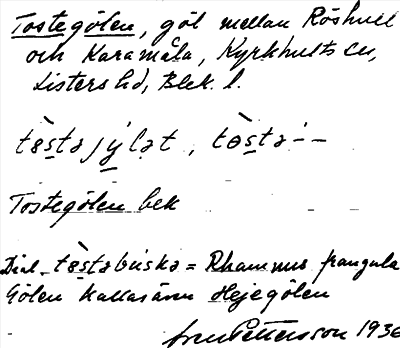 Tostegölen, göl mellan Röshult
och Karamåla, Kyrkhults sn,
Listers hd, Blek. l.
tòstajýlǝt, tòsta-́-
Tostegölen bek
Dial. tòstabuska = Rhamnus frangula
Gölen kallas även Hejegölen
Pettersson 1936